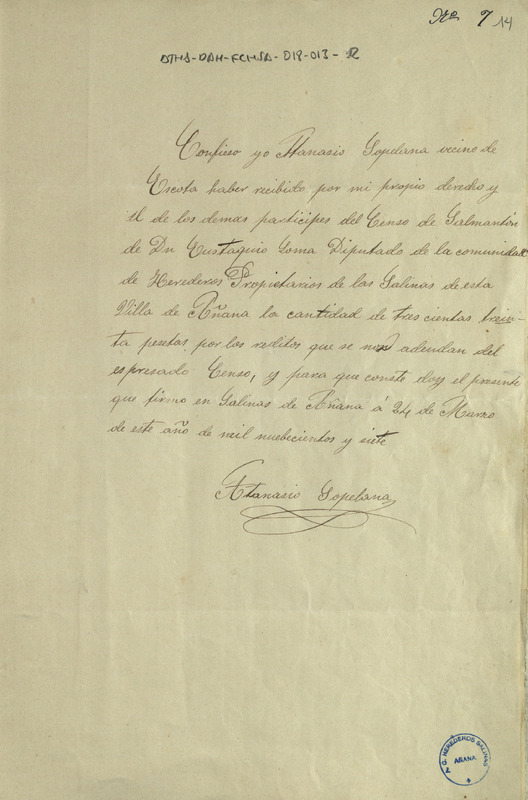 Nº 7 14
DTHA-DAH-FCHSA-018-013-12
Confieso yo Atanasio Sopelana vecino de
Escota haber recibido por mi propio derecho y
el de los demas participes del Censo de Salmantón
de Dn Eustaquio Loma Diputado de la comunidad
de Herederos Propietarios de las Salinas de esta
Villa de Añana la cantidad de tres cientas trein-
ta pesetas por los reditos que se nos adeudan del
espresado Censo, y para que conste doy el presente
que firmo en Salinas de Añana á 24 de Marzo
de este año de mil nuebecientos y siete
Atanasio Sopelana
A. G. HEREDEROS SALINAS
AÑANA